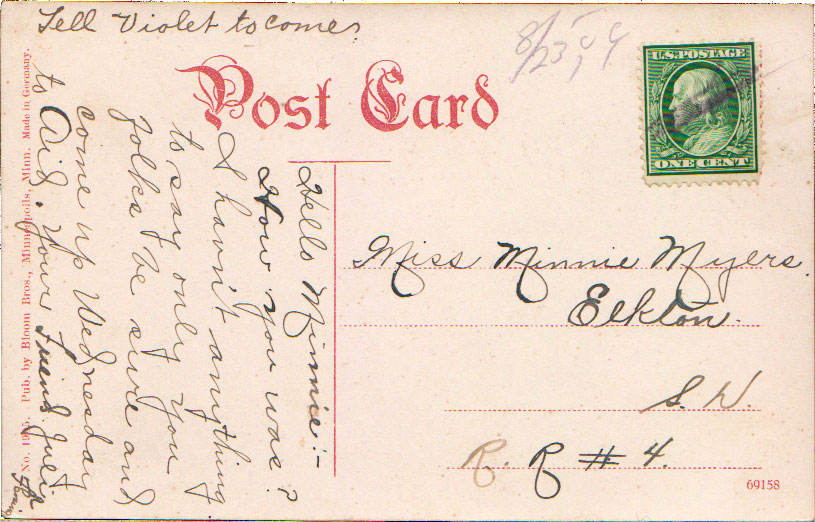 Tell Violet to come.
8/23/09
U.S. POSTAGE
ONE CENT
Post Card
Hello Minnie:-
How you was?
I havn't anything
to say only you
folks be sure and
come up Wednesday
to Aid. Your Friend
Miss Minnie Myers.
Elkton.
S. D.
R. R # 4.
Pub. by Bloom Bros., Minneapolis, Minn. Made in Germany.
69158